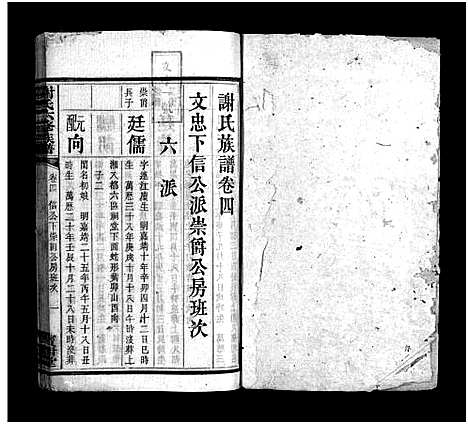 謝氏族譜卷四
文忠下信公派崇爵公房班次
六派
崇爵
長子
廷儒
字廷江庚生 明嘉靖十年辛卯四月廿二日巳時
生 萬曆三十八年庚戌十月十八日午時沒葬上
湘入都六區祠堂下面蛇形黄卯山酉向
子二
向
配阮
閨名初娘 明嘉靖二十五年丙午五月十八日丑
時生 萬曆二十年壬辰十月二十八日未時沒葬
謝氏六修族譜
卷四 信公下崇爵公房班次 一